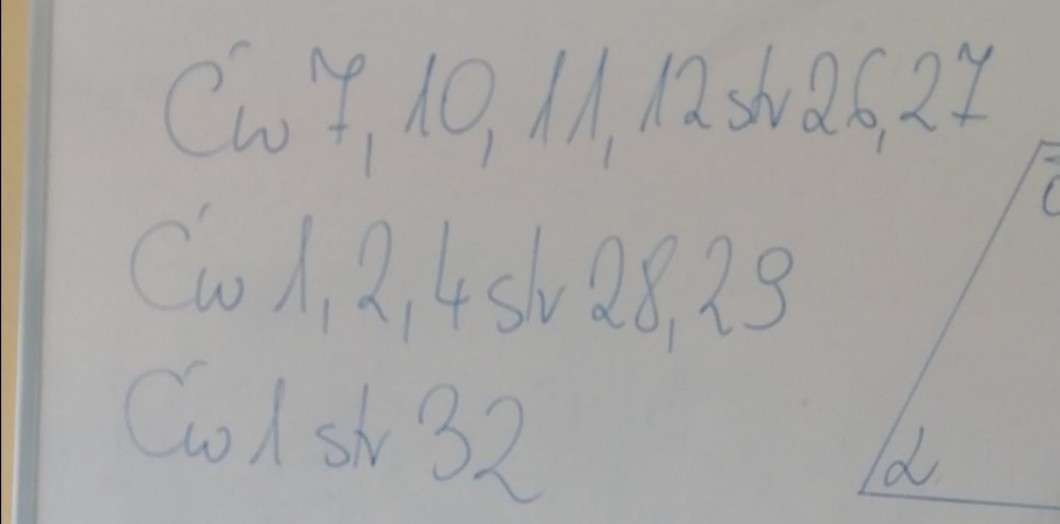 Ćw 7, 10, 11, 12 str 26, 27
Ćw 1, 2, 4 str 28, 29
Ćw 1 str 32
α